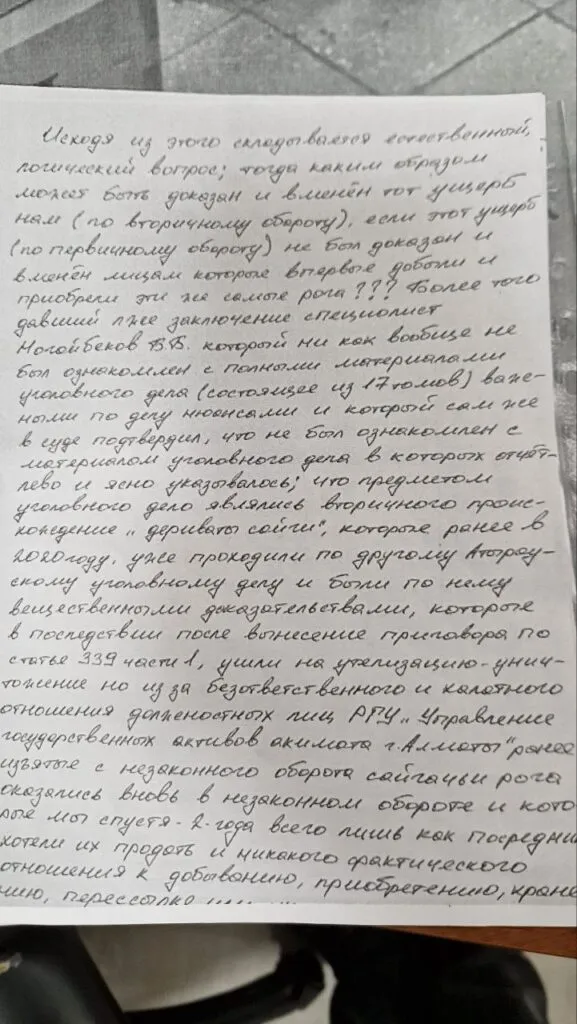 Исходя из этого складывается естественный,
логический вопрос; тогда каким образом
может быть доказан и вменён тот ущерб
нам (по вторичному обороту), если этот ущерб
(по первичному обороту) не был доказан и
вменён лицам которые впервые добыли и
приобрели эти же самые рога??? Более того
давший лже заключение специалист
Ногойбеков В.Б. который ни как вообще не
был ознакомлен с полными материалами
уголовного дела (состоящее из 17 томов) важ-
ными по делу нюансами и который сам же
в суде подтвердил, что не был ознакомлен с
материалом уголовного дела в которых отчёт-
лево и ясно указывалось; что предметом
уголовного дело являлись вторичного проис-
хождение „дериваты сайги", которые ранее в
2020 году, уже проходили по другому Атырау-
скому уголовному делу и были по нему
вещественными доказательствами, которые
в последствии после вынесение приговора по
статье 339 части 1, ушли на утелизацию-унич-
тожение но из за безответственного и халатного
отношения должностных лиц РГУ „Управление
государственных активов акимата г. Алматы" ранее
изъятые с незаконного оборота сайгачьи рога
оказались вновь в незаконном обороте и кото-
рые мы спустя - 2 - года всего лишь как посредни
хотели их продать и никакого фактического
отношения к добыванию, приобретению, хране
нию, перессылке